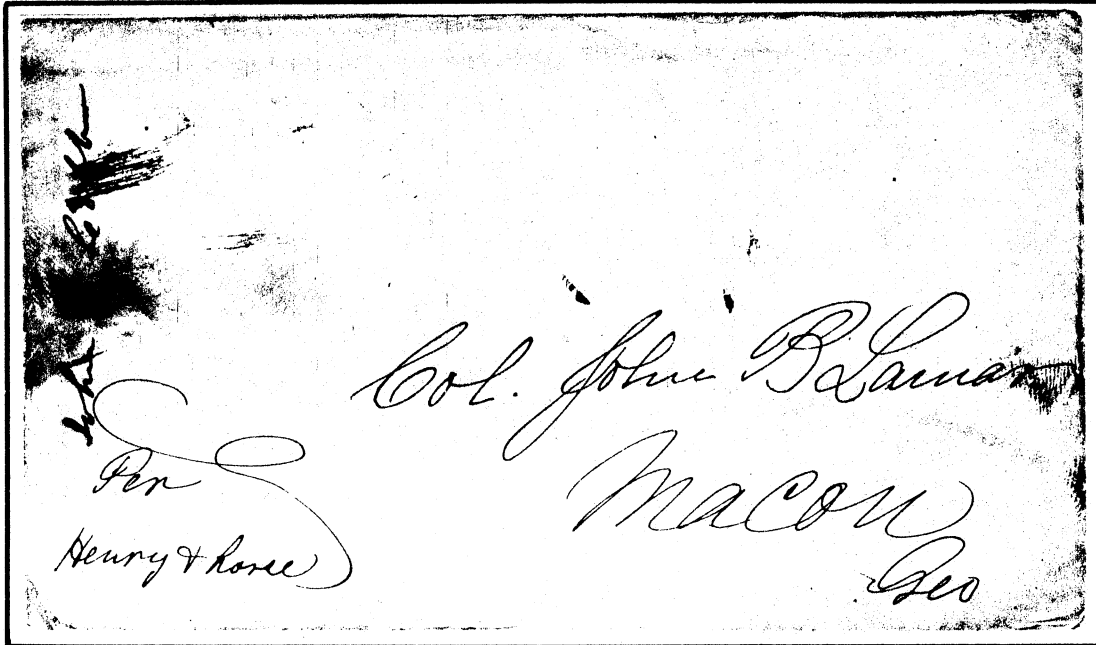 Col. John B Lamar
Macon
Geo
Per
Henry & horse